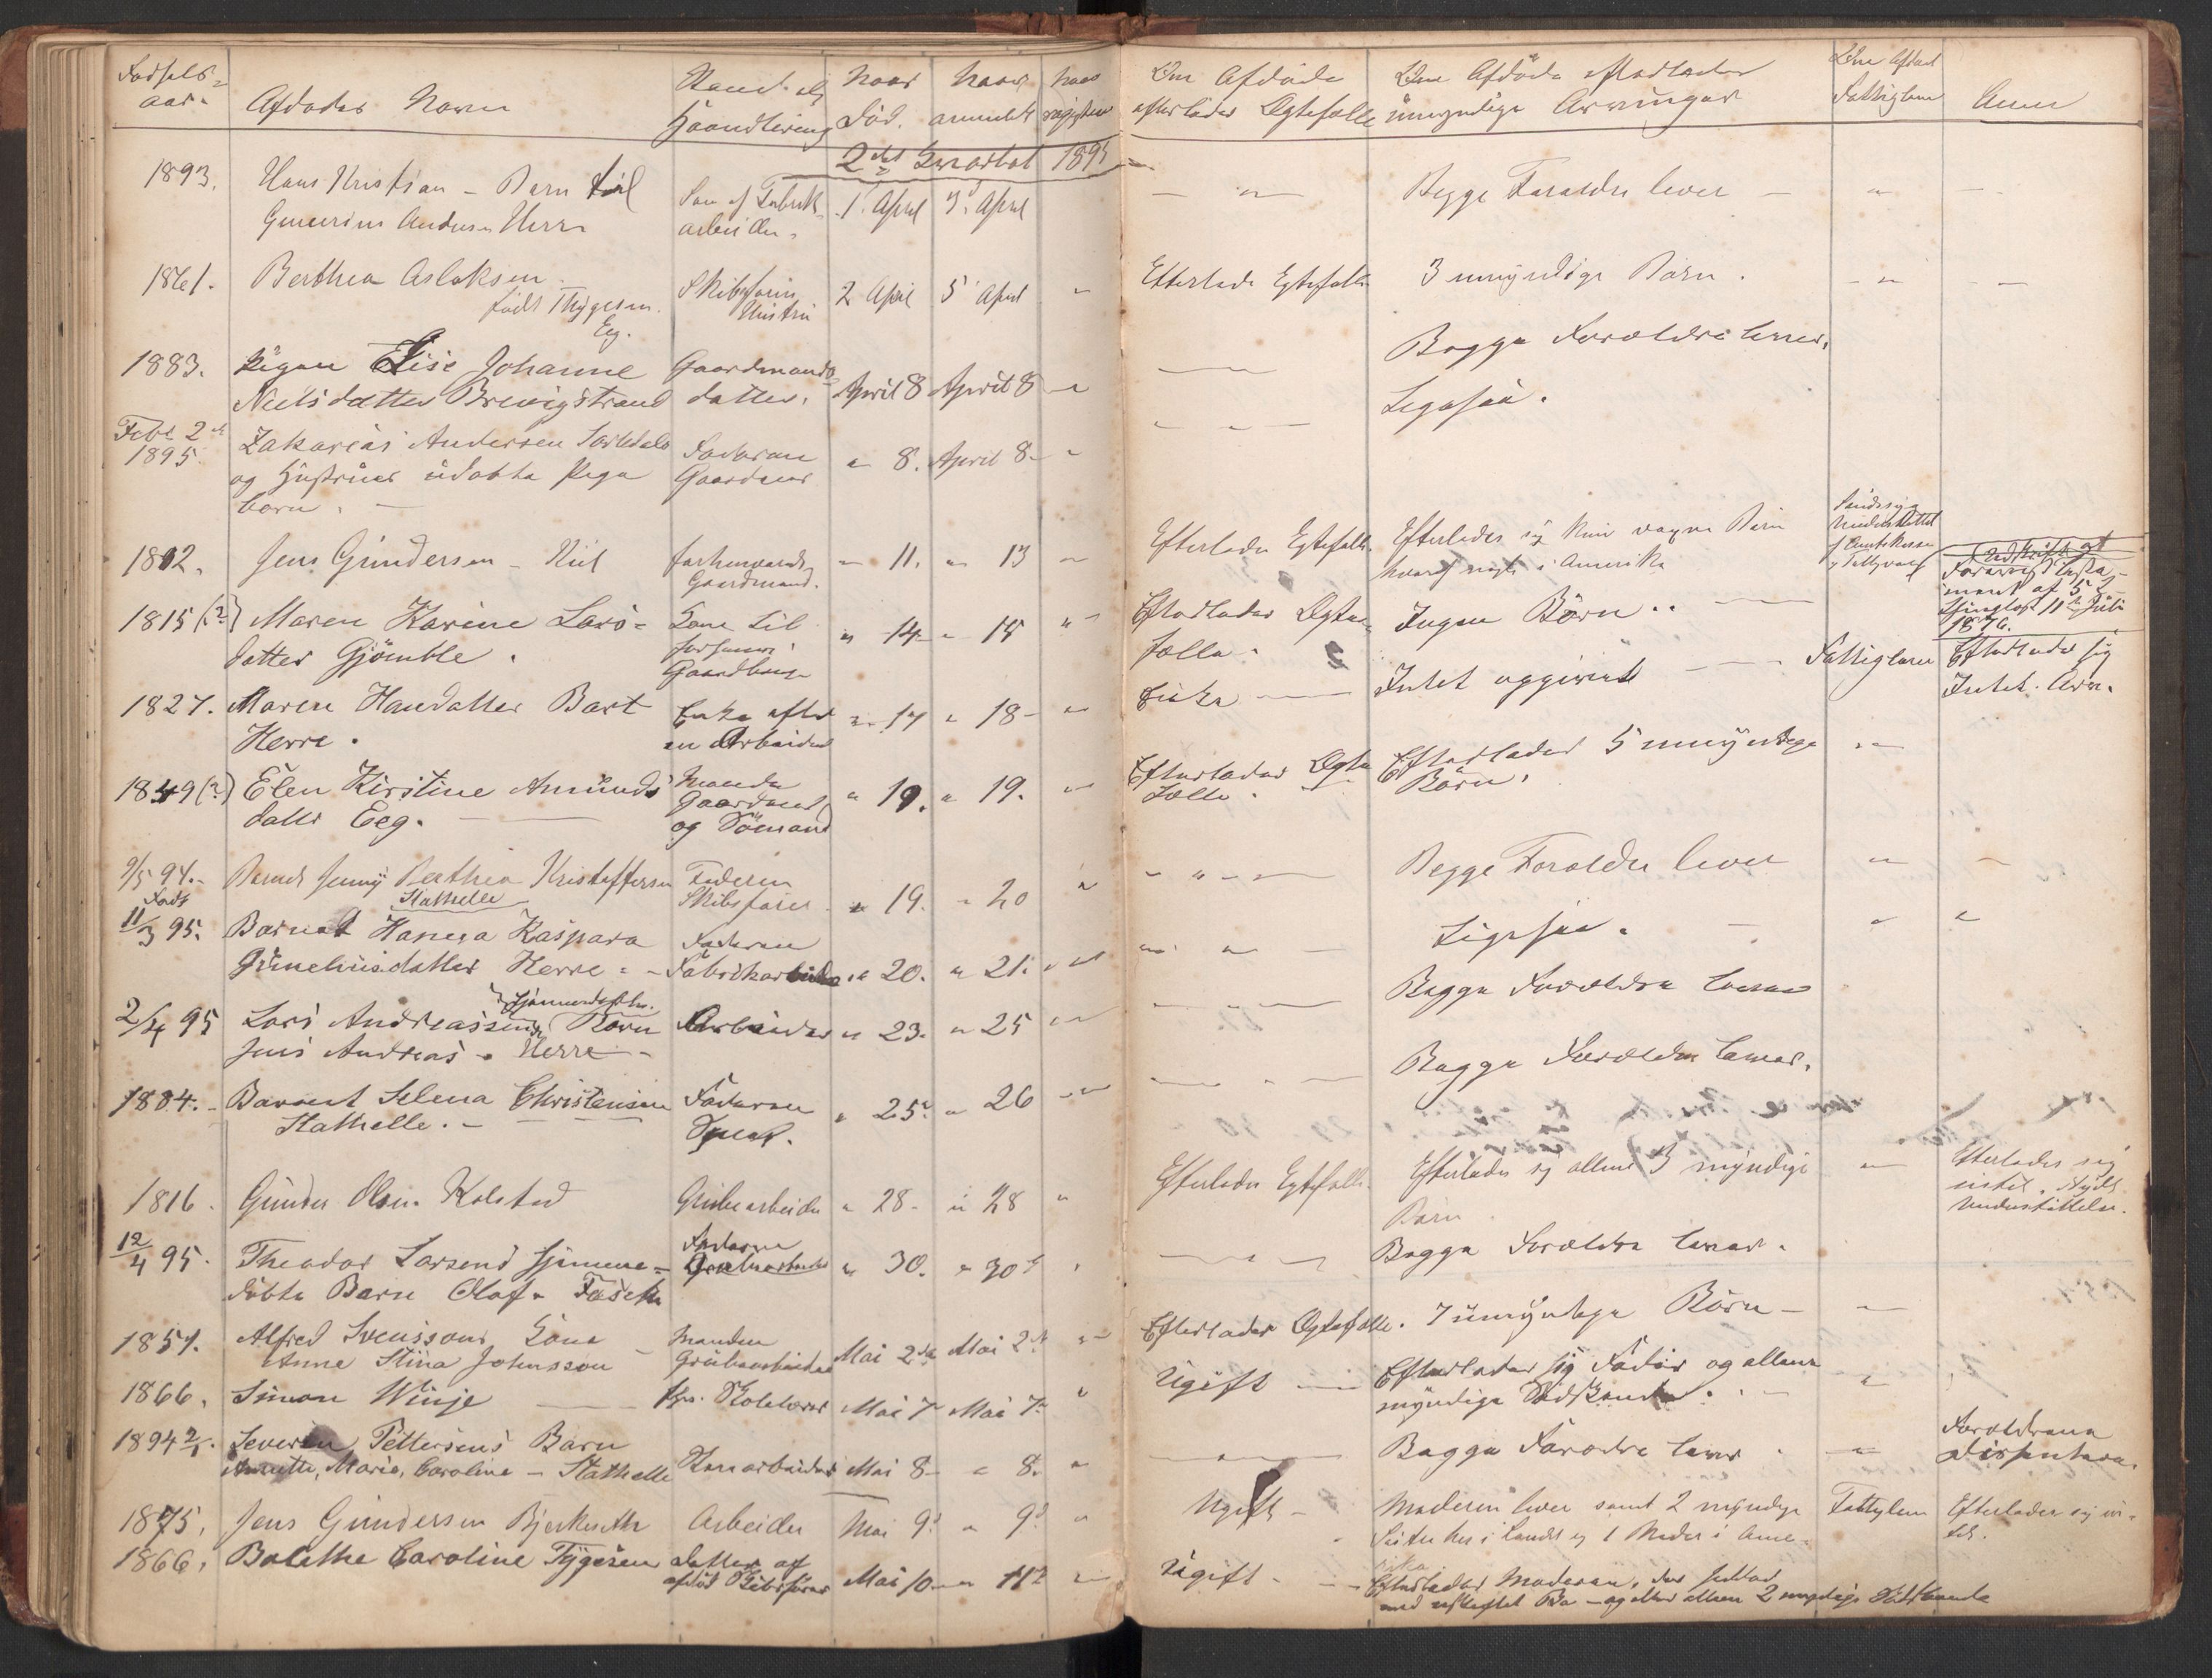 Fødsels-
aar.
Afdødes Navn
Stand eller
Haandtering
Naar
død.
Naar
anmeldt
Naar
registreret
Om Afdøde
efterlader Ægtefælle
Om Afdøde efterlader
umyndige Arvinger
Om Afdøde
Fattiglem
Anm
2det Qvartal 1895
1893. Hans Kristian - Barn til
Gunerius Andersen Herre
Søn af Fabrik-
arbeider.
1. April 3. April
Begge Forældre lever
1861. Berthea Aslaksen
født Thygesen.
Eeg.
Skibsførers
Hustru
2 April 5 April "
Efterlader Egtefælle 3 umyndige Børn.
1883. Pigen Elise Johanne
Nielsdatter Brevigstrand
Gaardmands-
datter.
April 8 April 8 "
Begge Forældre lever.
Febr 2de
1895. Zakarias Andersen
og Hustrues udøbte Pige
barn.
Faderen
Gaardmand
" 8. April 8 "
Ligesaa.
1812. Jens Gundersen -
forhenværende
Gaardmand.
" 11. " 13 "
Efterlader Egtefælle Efterlader sig kun voxne Børn
hvoraf nogle i Amerika
1815(?) Maren Karine Lars-
datter Gjømble.
Kone til
forhenv.
Gaardbruger
" 14 " 15 "
Efterlader Ægte-
fælle.
Ingen Børn..
11te Juli
1876.
1827. Maren Hansdatter Bart
Herre.
Enke efter
en Arbeider
" 17 " 18 "
Enke Intet opgivet Fattiglem Efterlader sig
Intet. Arv.
1849(?) Elen Kirstine Amunds
datter Eeg.
Manden
Gaardmand
og Sömand
" 19. " 19. "
Efterlader Ægte
fælle.
Efterlader 5 umyndige
Börn.
9/5 94. Barnet Jenny Berthea Kristoffersen
Stathelle
Faderen
Skibsfører
" 19. " 20 "
Begge Forældre lever "
Født
11/3 95. Barnet Hanna Kaspara
Guneliusdatter Herre.
Faderen
Fabrikarbeider
" 20. " 21. "
Ligesaa. " "
2/4 95 Lars Andreassens Hjemmedøbte Barn
Jens Andreas. Herre
Arbeider " 23. " 25 "
Begge Forældre lever
1884. Barnet Selena Christensen
Stathelle.
Faderen
" 25. " 26 "
Begge Forældre lever.
1816. Gunder Olsen Kolstad
Grubearbeider " 28. " 28 "
Efterlader Egtefælle Efterlader sig allene 3 myndige
Børn
Efterlader sig
intet. Nydt
Understøttelse.
12/4 95. Theodor Larsens hjemme-
døbte Barn Olaf.
Faderen
Grubearbeider
" 30. " 30
Begge Forældre lever.
1851. Alfred Svenssons Kone
Anne Stina Johnsson
Manden
Grubearbeider
Mai 2den Mai 2den "
Efterlader Ægtefælle. 7 umyndige Börn "
1866. Simon Winje
Skolelærer Mai 7 Mai 7 "
Ugift Efterlader sig Fader og allene
myndige Södskende. "
1894 2/1. Severin Pettersens Barn
Annette, Marie, Caroline - Stathelle
Mai 8 " 8. "
Begge Forældre lever. "
Forældrene
Dissentere.
1875. Jens Gundersen
Arbeider Mai 9. " 9. "
Ugift - Moderen lever samt 2 myndige
Søstre her i Landet og 1 Broder i Ame-
rika
Fattiglem Efterlader sig in-
tet.
1866. Bolethe Caroline Tygesen
Datter af
afdød Skibsfører
Mai 10 " 11 "
Ugift - Efterlader Moderen, der sidder
med uskiftet Bo - og eller allene 2 myndige Södskende